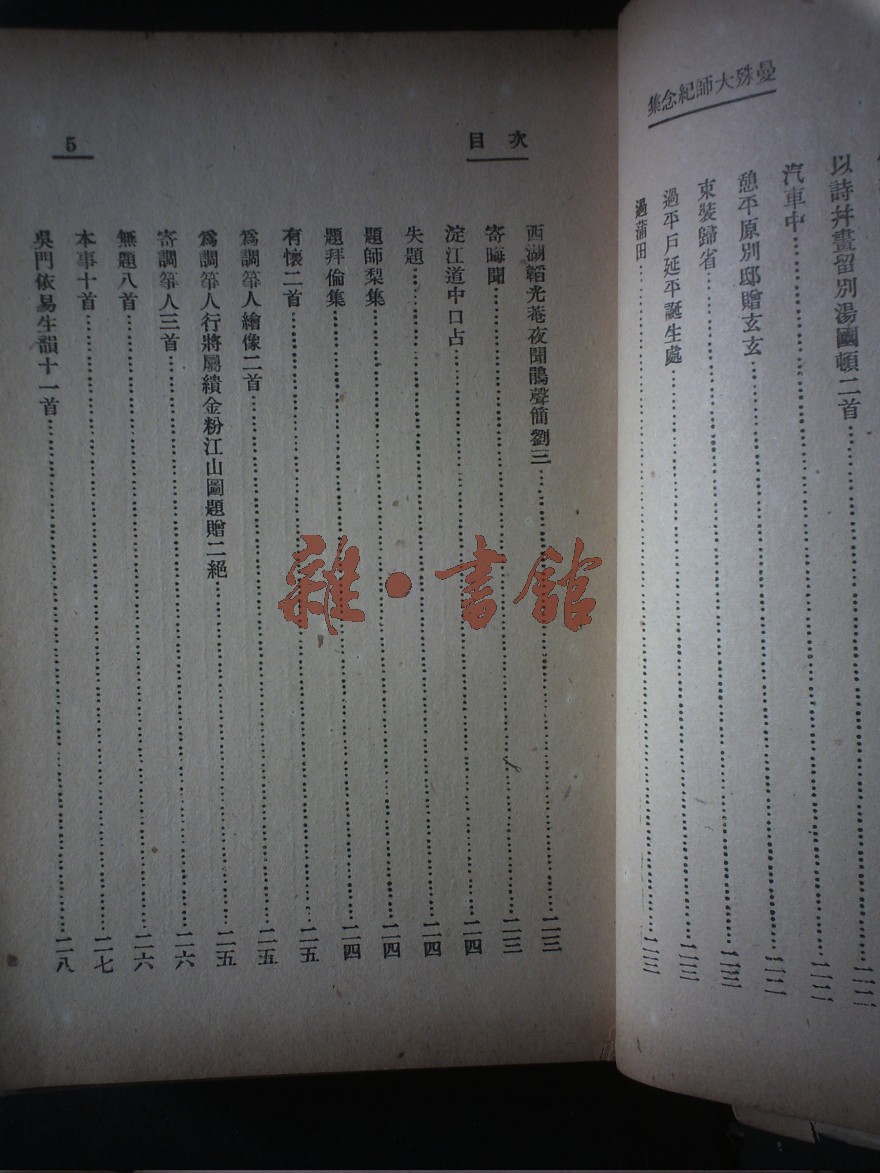 曼殊大師紀念集
以詩幷畫留別湯國頓二首……二二
汽車中……二二
憩平原別邸贈玄玄……二二
束裝歸省……二三
過平戶延平誕生處……二三
過蒲田……二三
目次
5
西湖韜光菴夜聞鵑聲簡劉三……二三
寄晦聞……二三
淀江道中口占……二四
失題……二四
題師梨集……二四
題拜倫集……二四
有懷二首……二五
爲調箏人繪像二首……二五
爲調箏人行將屬縝金粉江山圖題贈二絕……二五
寄調箏人三首……二六
無題八首……二六
本事十首……二七
吳門依易生韻十一首……二八
雜·書館